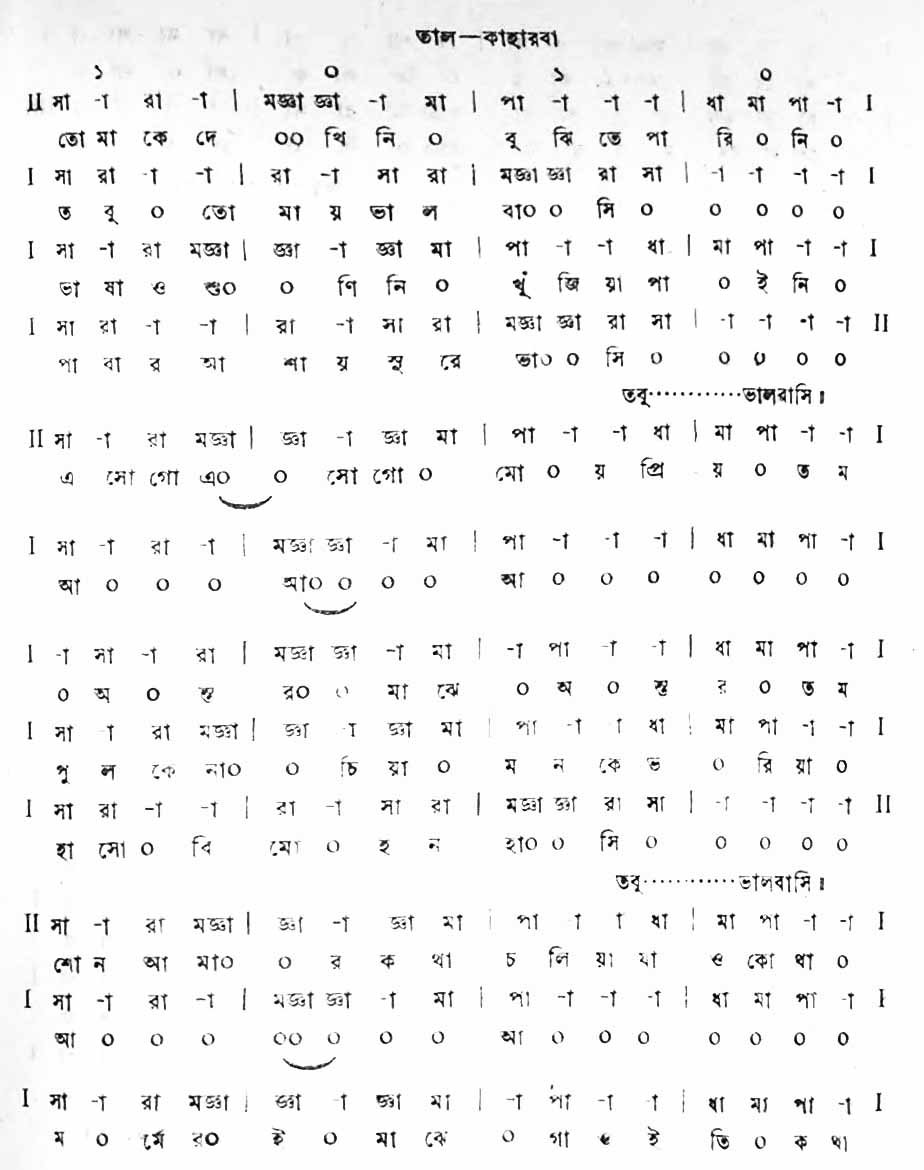 তাল—কাহারবা
১ ০ ১ ০
II সা -া রা -া | মজ্ঞা জ্ঞা -া মা | পা -া -া -া | ধা মা পা -া I
তো মা কে দে ০০ খি নি ০ বু ঝি তে পা রি ০ নি ০
I সা রা -া -া | রা -া সা রা | মজ্ঞা জ্ঞা রা সা | -া -া -া -া I
ত বু ০ তো মা য় ভা ল বা০ ০ সি ০ ০ ০ ০ ০
I সা -া রা মজ্ঞা | জ্ঞা -া জ্ঞা মা | পা -া -া ধা | মা পা -া -া I
ভা ষা ও শু০ ০ ণি নি ০ খুঁ জি য়া পা ০ ই নি ০
I সা রা -া -া | রা -া সা রা | মজ্ঞা জ্ঞা রা সা | -া -া -া -া II
পা বা র আ শা য় সু রে ভা০ ০ সি ০ ০ ০ ০ ০
তবু············ভালবাসি।
II সা -া রা মজ্ঞা | জ্ঞা -া জ্ঞা মা | পা -া -া ধা | মা পা -া -া I
এ সো গো এ০ ০ সো গো ০ মো ০ য় প্রি য় ০ ত ম
I সা -া রা -া | মজ্ঞা জ্ঞা -া মা | পা -া -া -া | ধা মা পা -া I
আ ০ ০ ০ আ০ ০ ০ ০ আ ০ ০ ০ ০ ০ ০ ০
I -া সা -া রা | মজ্ঞা জ্ঞা -া মা | -া পা -া -া | ধা মা পা -া I
০ অ ০ ন্ত র০ ০ মা ঝে ০ অ ০ ন্ত র ০ ত ম
I সা -া রা মজ্ঞা | জ্ঞা -া জ্ঞা মা | পা -া -া ধা | মা পা -া -া I
পু ল কে না০ ০ চি য়া ০ ম ন কে ভ ০ রি য়া ০
I সা রা -া -া | রা -া সা রা | মজ্ঞা জ্ঞা রা সা | -া -া -া -া II
হা সো ০ বি মো ০ হ ন হা০ ০ সি ০ ০ ০ ০ ০
তবু············ভালবাসি।
II সা -া রা মজ্ঞা | জ্ঞা -া জ্ঞা মা | পা -া -া ধা | মা পা -া -া I
শো ন আ মা০ ০ র ক থা চ লি য়া যা ও কো থা ০
I সা -া রা -া | মজ্ঞা জ্ঞা -া মা | পা -া -া -া | ধা মা পা -া I
আ ০ ০ ০ ০০ ০ ০ ০ আ ০ ০ ০ ০ ০ ০ ০
I সা -া রা মজ্ঞা | জ্ঞা -া জ্ঞা মা | -া পা -া -া | ধা মা পা -া I
ম ০ র্মে র০ ই ০ মা ঝে ০ গা ই তি ০ ক থা